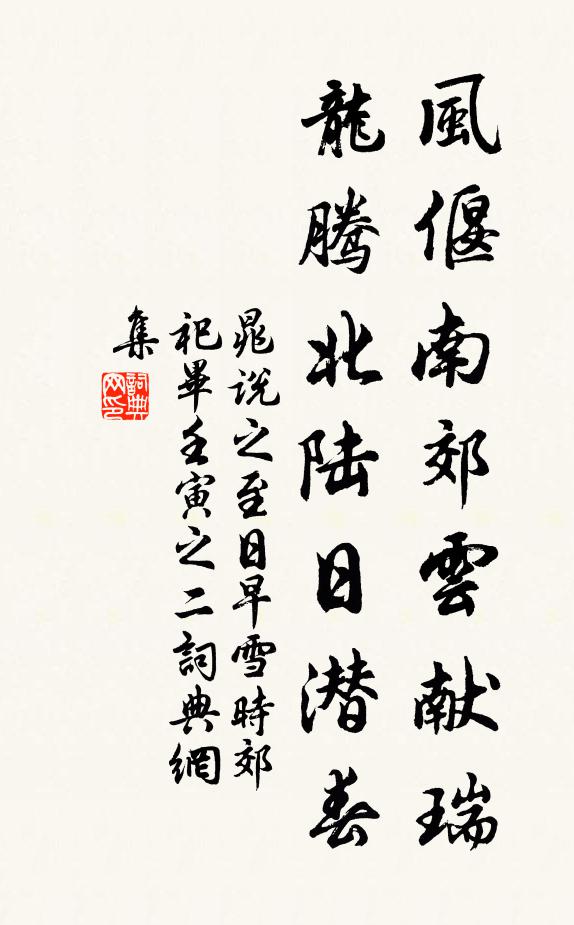 風偃南郊雲献瑞
龍騰北陆日潜春
晁说之至日早雪時郊
祀畢壬寅之二詞典網
集
詞典网印